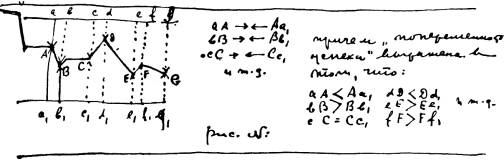 a b c d e f g
A B C D E F G
a₁ b₁ c₁ d₁ e₁ f₁ g₁
aA → ← Aa₁
bB → ← Bb₁
cC → ← Cc₁
и т.д.
рис. №:
причем „попеременность
выражена в
том, что:
aA < Aa₁ dD < Dd₁
bB > Bb₁ eE > Ee₁ и т.д.
cC = Cc₁ fF > Ff₁